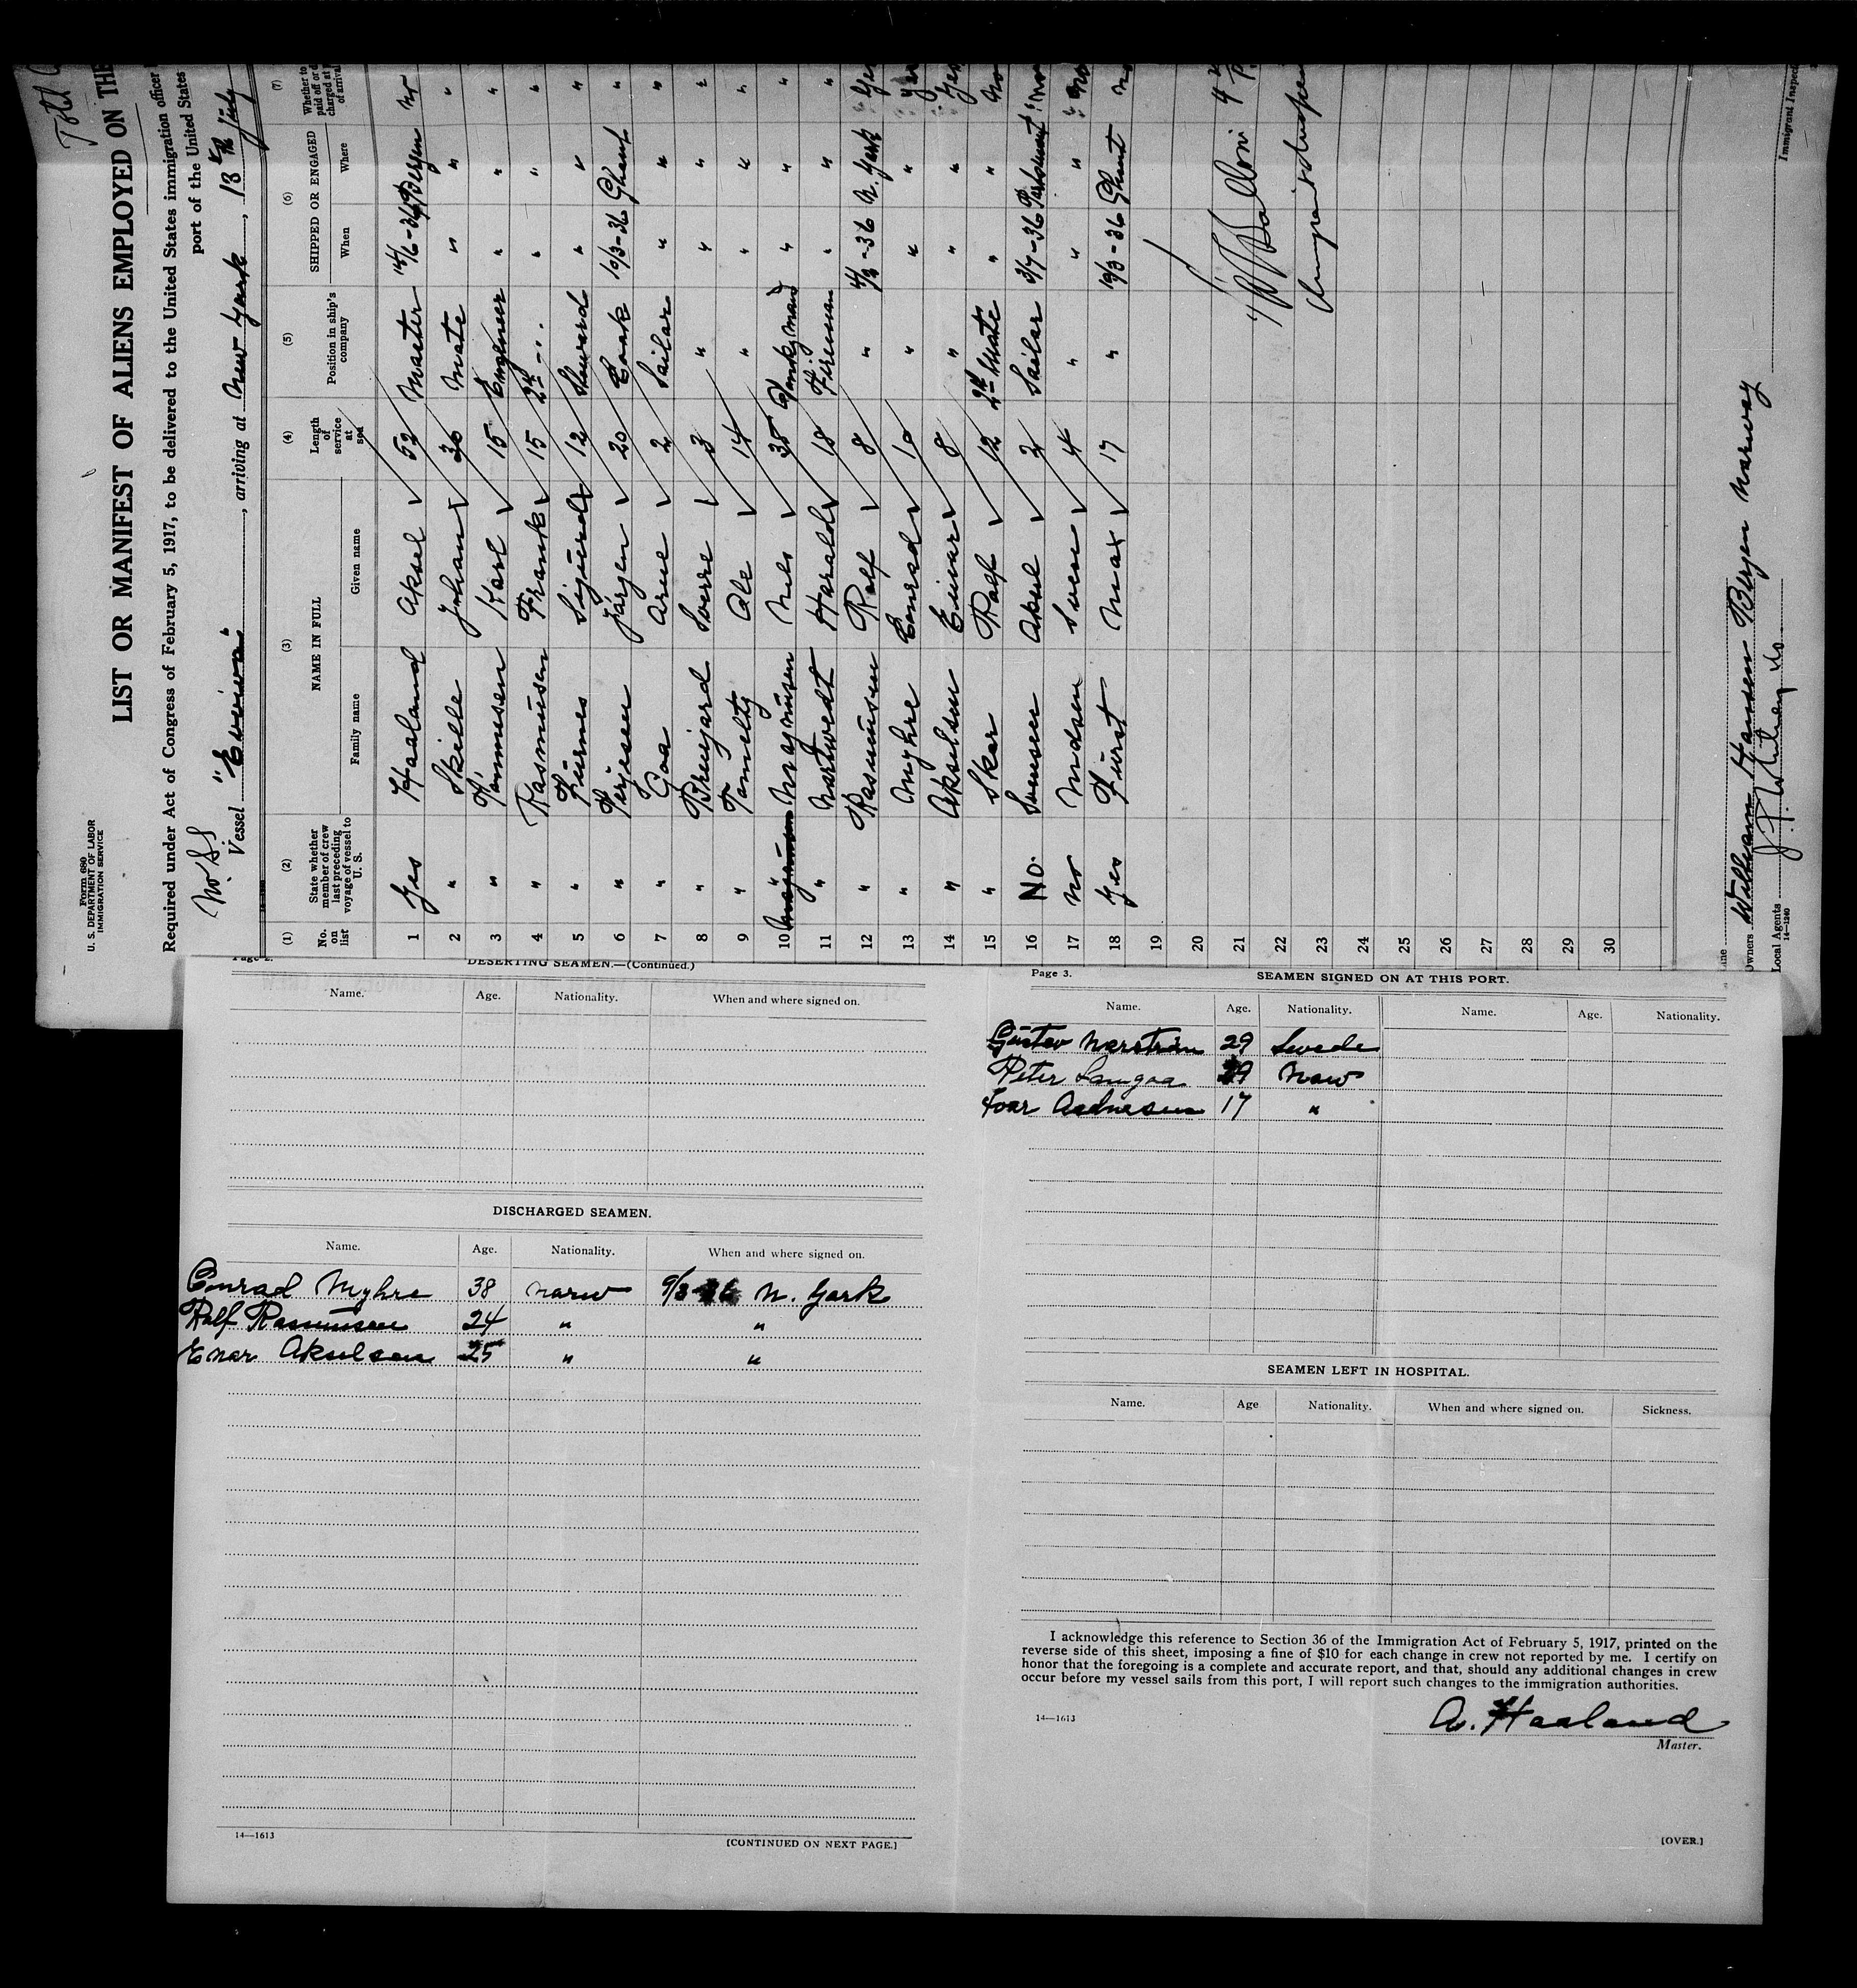 Form 680
U. S. DEPARTMENT OF LABOR
IMMIGRATION SERVICE
LIST OR MANIFEST OF ALIENS EMPLOYED ON THE
Required under Act of Congress of February 5, 1917, to be delivered to the United States immigration officer
port of the United States
Vessel , arriving at New York , 13th July
(1) (2) (3) (4) (5) (6) (7)
No. on list
State whether member of crew last preceding voyage of vessel to U. S.
NAME IN FULL
Family name Given name
Length of service at sea
Position in ship's company
SHIPPED OR ENGAGED
When Where
Whether to paid off or charged at of arrival
1 Yes Haaland Aksel 52 Master Bergen no
2 " Skille Johan Mate " " "
3 " Karl 15 Engineer " " "
4 " Rasmusen Frank 15 2nd " " "
5 " Furnes Sigurd 12 Steward " " "
6 " Terjesen Jørgen 20 Cook 10/3-36 Ghent "
7 " Goa Arne 2 Sailor " " "
8 " Sverre 3 " " " "
9 " Ole 14 " " " "
10 Magnusen Nils " " "
11 " Nartwedt Harald 18 Fireman " " "
12 " Rasmusen Ralf 8 " N. York Yes
13 " Myhre Conrad 10 " " " Yes
14 " Akselsen Einar 8 " " " Yes
15 " Skar Ralf 12 2nd Mate " " No
16 No. Svensen Aksel 2 Sailor 3/7-36 no
17 no Madsen Sven 4 " " " no
18 Yes Fürst Max 17 " 10/3-36 Ghent no
19
20
21
22
23
24
25
26
27
28
29
30
Owners William Hansen Bergen Norway
Local Agents
14—1240
Immigrant Inspec
DESERTING SEAMEN.—(Continued.)
Name. Age. Nationality. When and where signed on.
DISCHARGED SEAMEN.
Name. Age. Nationality. When and where signed on.
Conrad Myhre 38 Norw 9/3-36 N. York
Ralf Rasmusen 24 " "
Enar Akselsen 25 " "
14—1613
[CONTINUED ON NEXT PAGE.]
Page 3.
SEAMEN SIGNED ON AT THIS PORT.
Name. Age. Nationality. Name. Age. Nationality.
Gustav 29 Swede
Peter Langaa 29 Norw
Ivar Aadnesen 17 "
SEAMEN LEFT IN HOSPITAL.
Name. Age Nationality. When and where signed on. Sickness.
I acknowledge this reference to Section 36 of the Immigration Act of February 5, 1917, printed on the
reverse side of this sheet, imposing a fine of $10 for each change in crew not reported by me. I certify on
honor that the foregoing is a complete and accurate report, and that, should any additional changes in crew
occur before my vessel sails from this port, I will report such changes to the immigration authorities.
14—1613
A. Haaland
Master.
[OVER.]